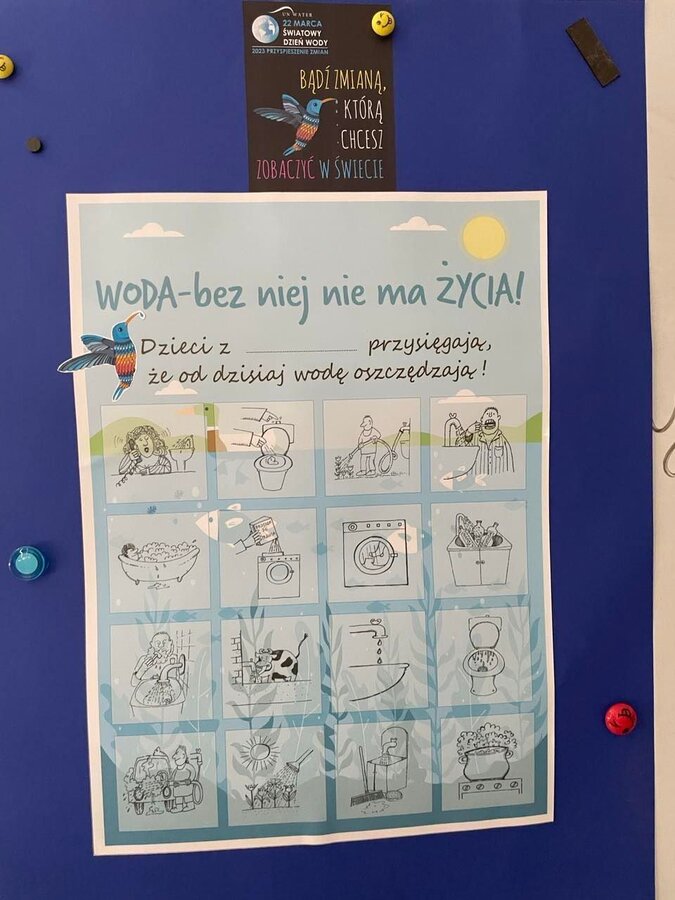 UN WATER
22 MARCA
ŚWIATOWY
DZIEŃ WODY
2023 PRZYSPIESZENIE ZMIAN
BĄDŹ ZMIANĄ,
KTÓRĄ
CHCESZ
ZOBACZYĆ W ŚWIECIE
WODA-bez niej nie ma ŻYCIA!
Dzieci z ........................ przysięgają,
że od dzisiaj wodę oszczędzają!
PROSZEK
DO
PRANIA